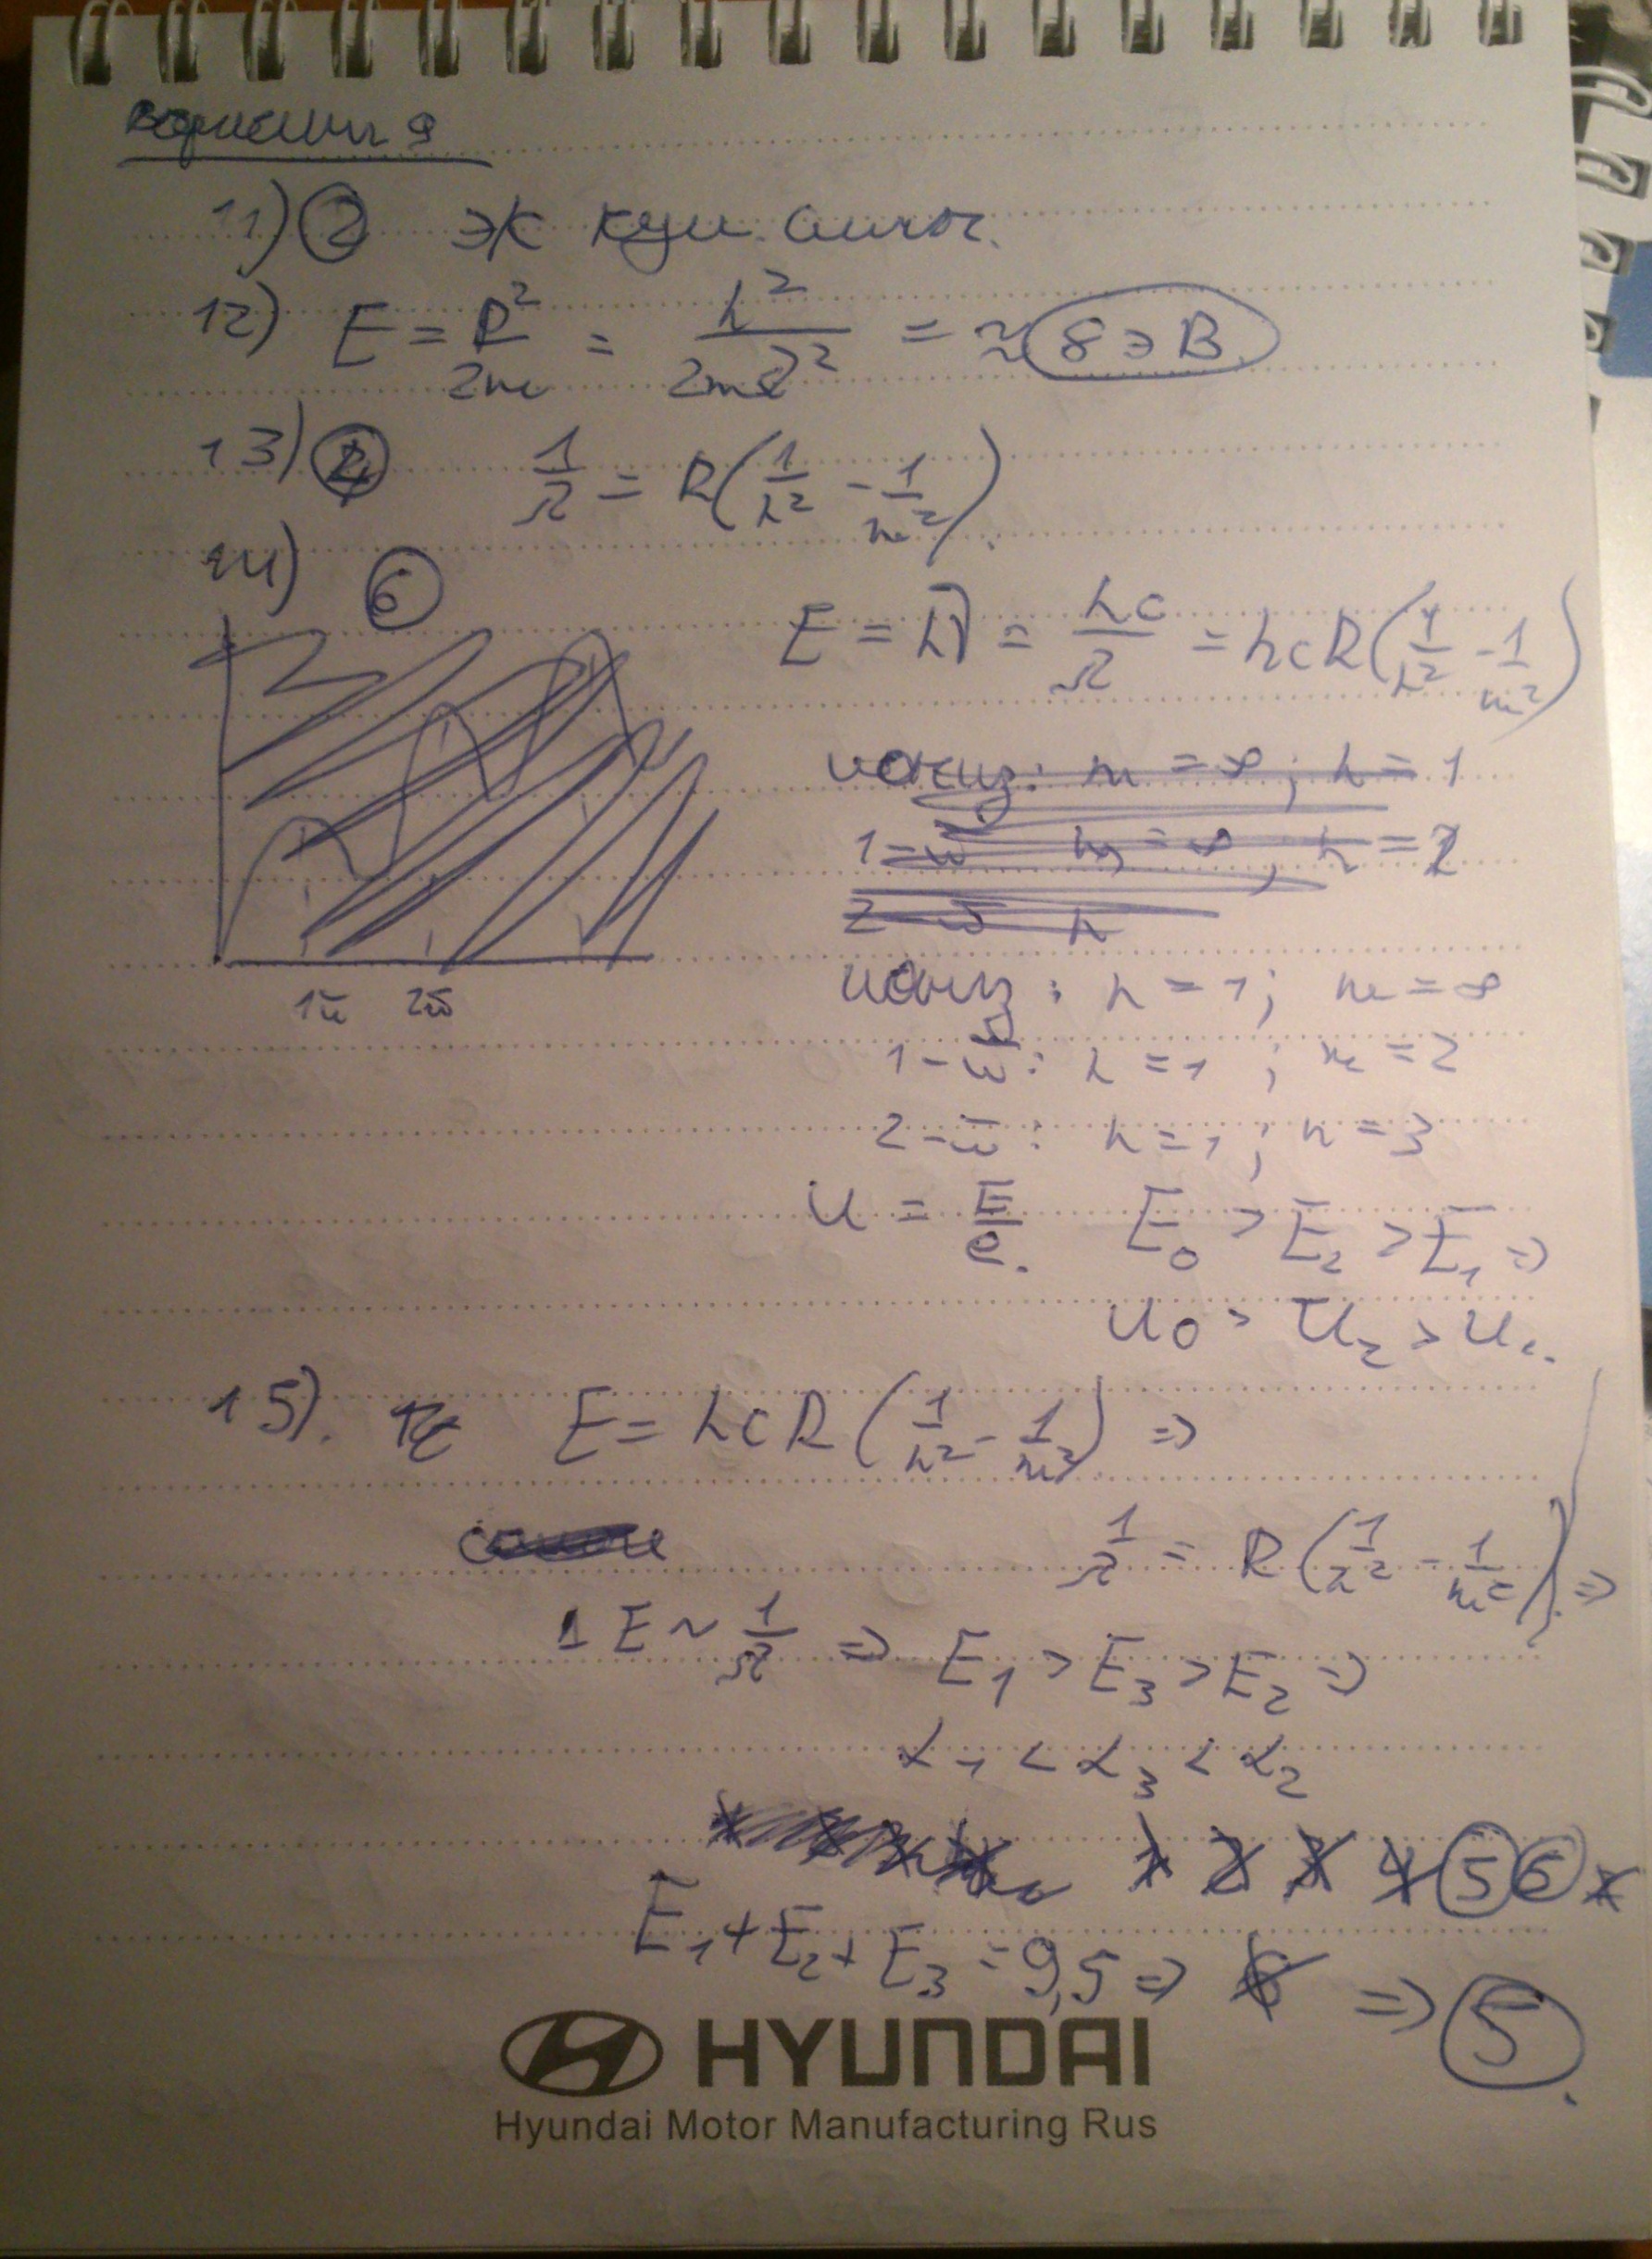 вариант 9
11) 2 ЭК кул. силы.
12) E = P²/2m = h²/2mλ² = ≈ 8 эВ
13) 4 1/λ = R(1/n² - 1/m²).
14) 6
E = hν = hc/λ = hcR(1/n² - 1/m²)
1й 2й
иониз: m = ∞; n = 1
1-й m = ∞, n = 2
2-й n
иониз: n = 1; m = ∞
1-й: n = 1; m = 2
2-й: n = 1; n = 3
U = E/e. E₀ > E₂ > E₁ =>
U₀ > U₂ > U₁.
15). E = hcR(1/n² - 1/m²) =>
1/λ = R(1/n² - 1/m²). =>
E ~ 1/λ => E₁ > E₃ > E₂ =>
λ₁ < λ₃ < λ₂
1 2 3 4 5 6
E₁ + E₂ + E₃ = 9,5 => 6 => 5.
HYUNDAI
Hyundai Motor Manufacturing Rus